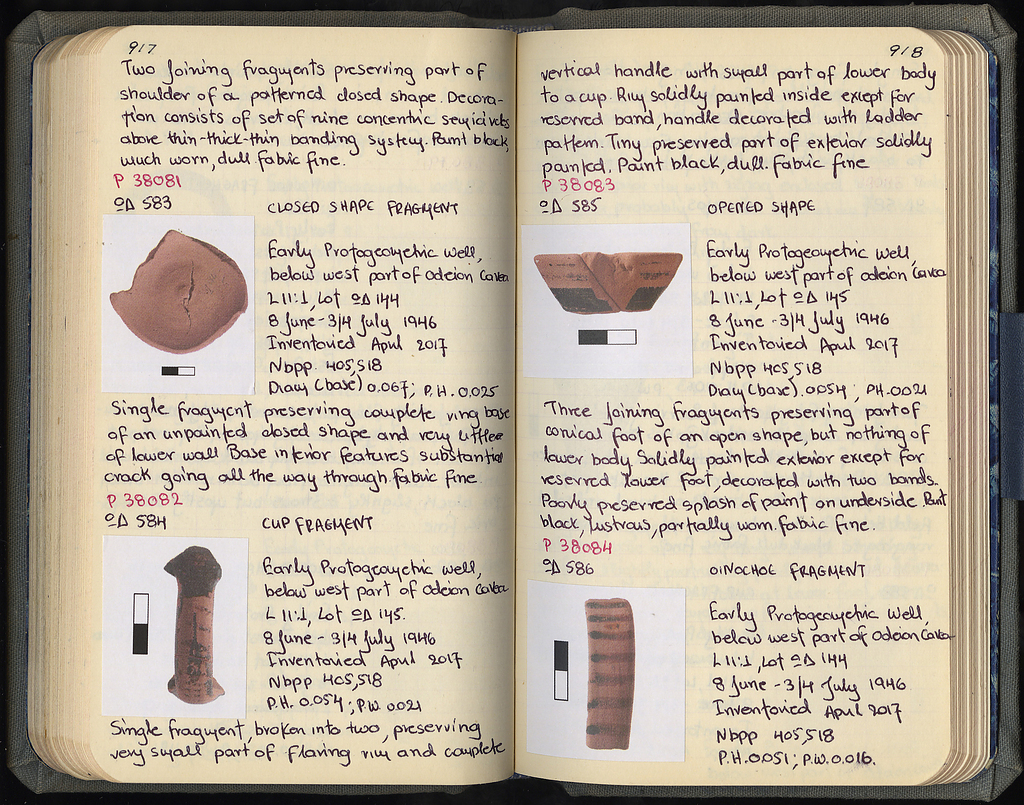 917
Two joining fragments preserving part of
shoulder of a patterned closed shape. Decora-
tion consists of set of nine concentric semicircles
above thin-thick-thin banding system. Paint black,
much worn, dull. Fabric fine.
P 38081
ΟΔ 583
CLOSED SHAPE FRAGMENT
Early Protogeometric well,
below west part of Odeion Cavea
L 11:1, Lot ΟΔ 144
8 June - 3/4 July 1946
Inventoried April 2017
Nbpp. 405,518
Diam (base) 0.067; P.H. 0.025
Single fragment preserving complete ring base
of an unpainted closed shape and very little
of lower wall Base interior features substantial
crack going all the way through. Fabric fine
P 38082
ΟΔ 584
CUP FRAGMENT
Early Protogeometric well,
below west part of Odeion Cavea
L 11:1, Lot ΟΔ 145.
8 June - 3/4 July 1946
Inventoried April 2017
Nbpp 405,518
P.H. 0.054; P.W. 0.021
Single fragment, broken into two, preserving
very small part of flaring rim and complete
918
vertical handle with small part of lower body
to a cup. Rim solidly painted inside except for
reserved band, handle decorated with ladder
pattern. Tiny preserved part of exterior solidly
painted. Paint black, dull. Fabric fine
P 38083
ΟΔ 585
OPENED SHAPE
Early Protogeometric well,
below west part of Odeion Cavea
L 11:1, Lot ΟΔ 145
8 June - 3/4 July 1946
Inventoried April 2017
Nbpp 405,518
Diam (base). 0.054; P.H. 0.021
Three joining fragments preserving part of
conical foot of an open shape, but nothing of
lower body. Solidly painted exterior except for
reserved lower foot, decorated with two bands.
Poorly preserved splash of paint on underside. Paint
black, lustrous, partially worn. Fabric fine.
P 38084
ΟΔ 586
OINOCHOE FRAGMENT
Early Protogeometric well,
below west part of Odeion Cavea
L 11:1, Lot ΟΔ 144
8 June - 3/4 July 1946
Inventoried April 2017
Nbpp 405,518
P.H. 0.051; P.W. 0.016.